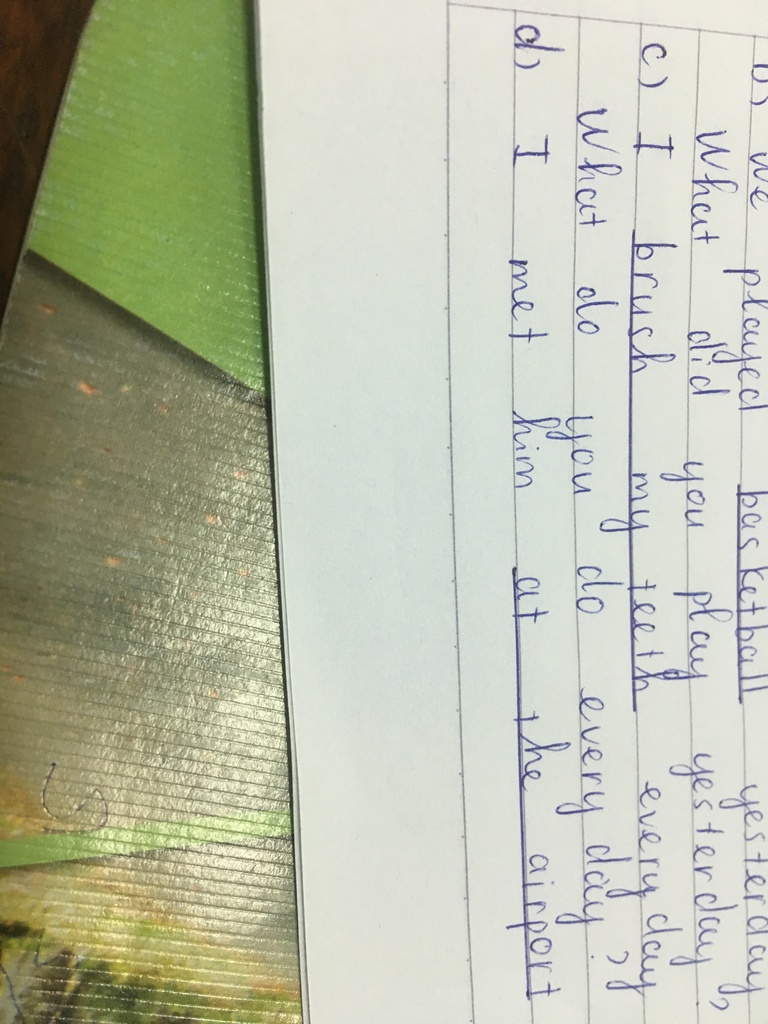 b) We played basketball yesterday
What did you play yesterday?
c) I brush my teeth everyday
What do you do everyday?
d) I met him at the airport